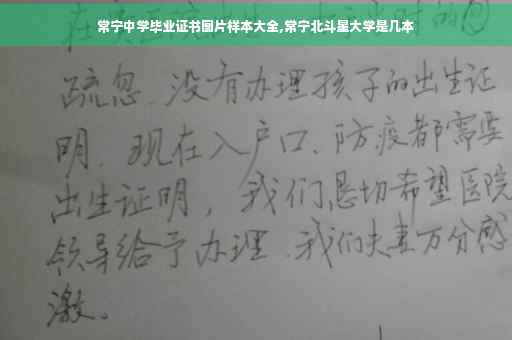 常宁中学毕业证书图片样本大全,常宁北斗星大学是几本
疏忽、没有办理孩子的出生证
明、现在入户口、防疫都需要
出生证明，我们恳切希望医院
领导给予办理、我们夫妻万分感
激。